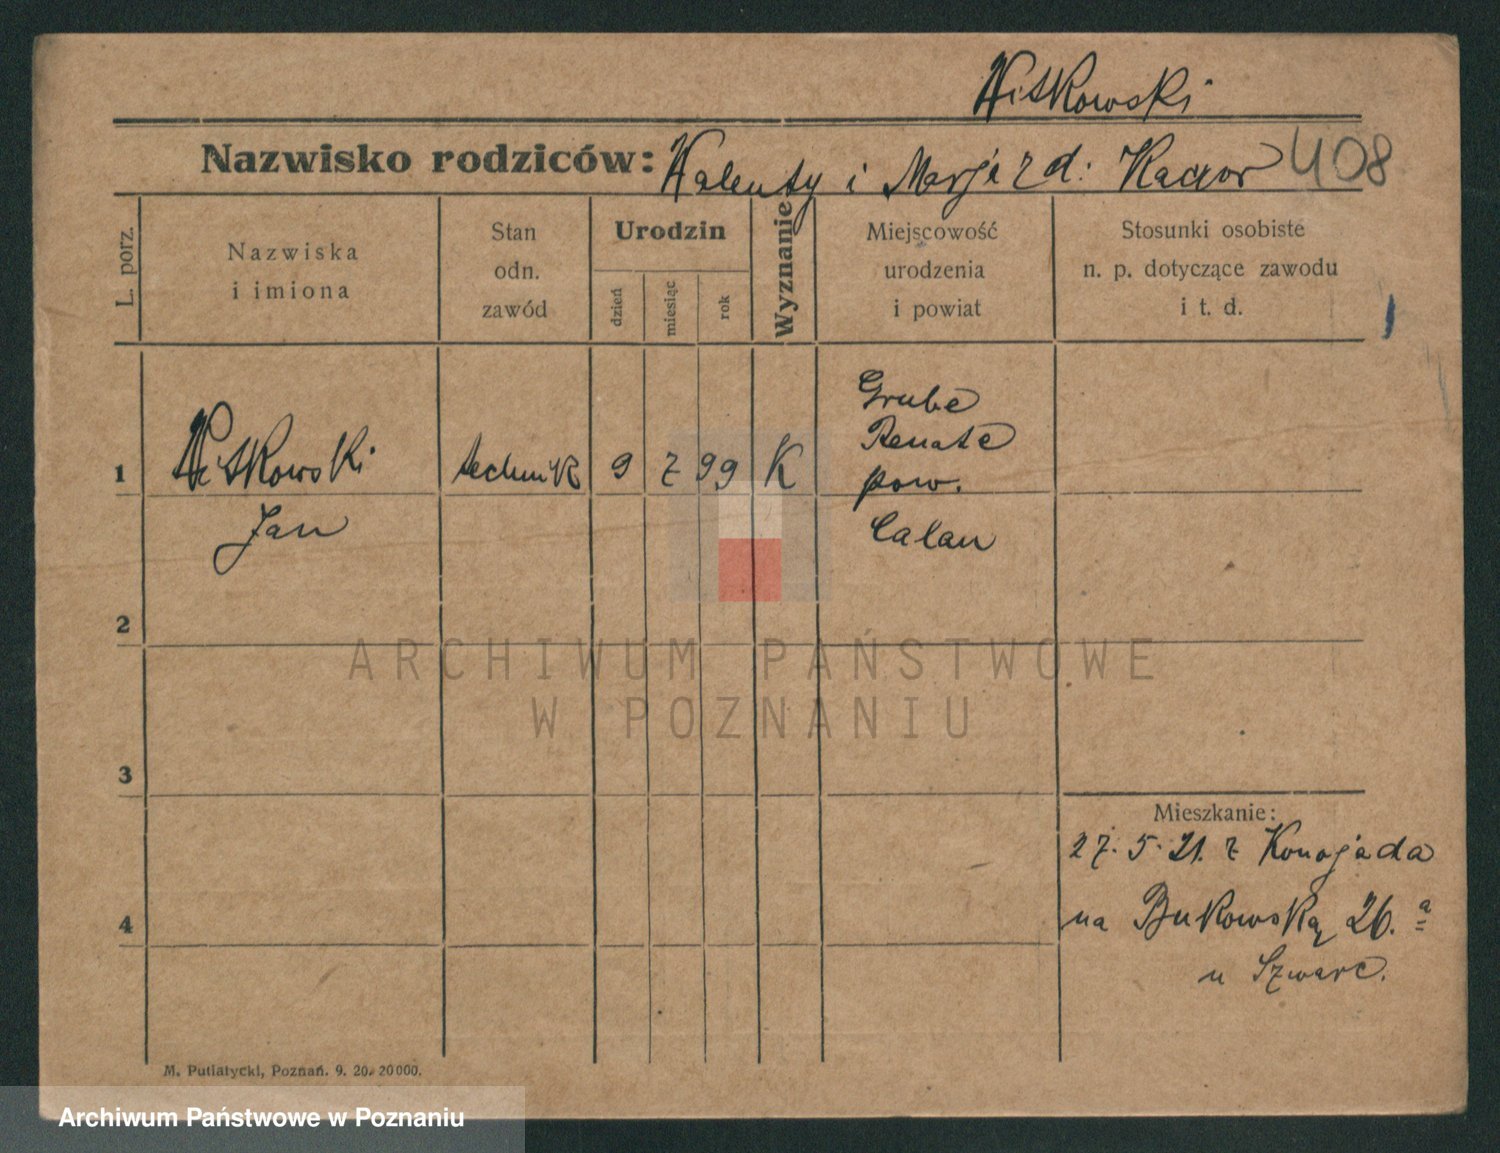 Witkowski
Nazwisko rodziców: Walenty i Marja z d: Kaczor 408
L. porz.
Nazwiska
i imiona
Stan
odn.
zawód
Urodzin
dzień
miesiąc
rok
Wyznanie
Miejscowość
urodzenia
i powiat
Stosunki osobiste
n. p. dotyczące zawodu
i t. d.
1
Witkowski
Jan
technik
9
7
99
K
Grube
Renate
pow.
Calau
2
3
4
Mieszkanie:
27.5.21. z Konojada
na Bukowską 26.a
u Szwarc.
M. Putiatycki, Poznań. 9. 20. 20000.
ARCHIWUM PAŃSTWOWE
W POZNANIU
Archiwum Państwowe w Poznaniu